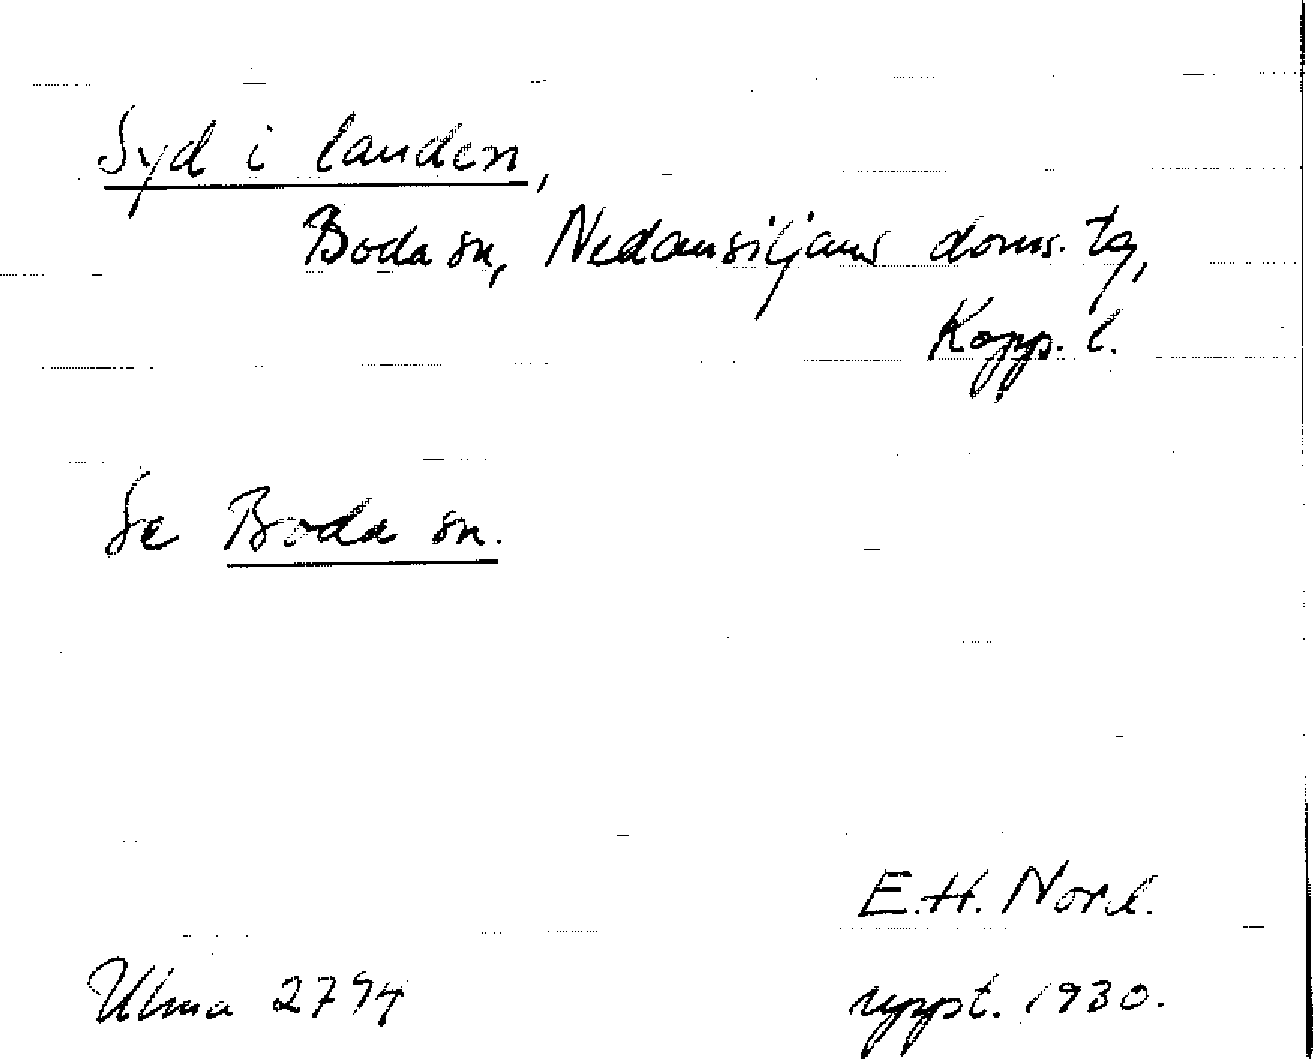 Syd i landen,
Boda sn, Nedansiljans doms. tg,
Kopp. l.
Se Boda sn.
E.H. Nord.
Ulma 2794 uppt. 1930.